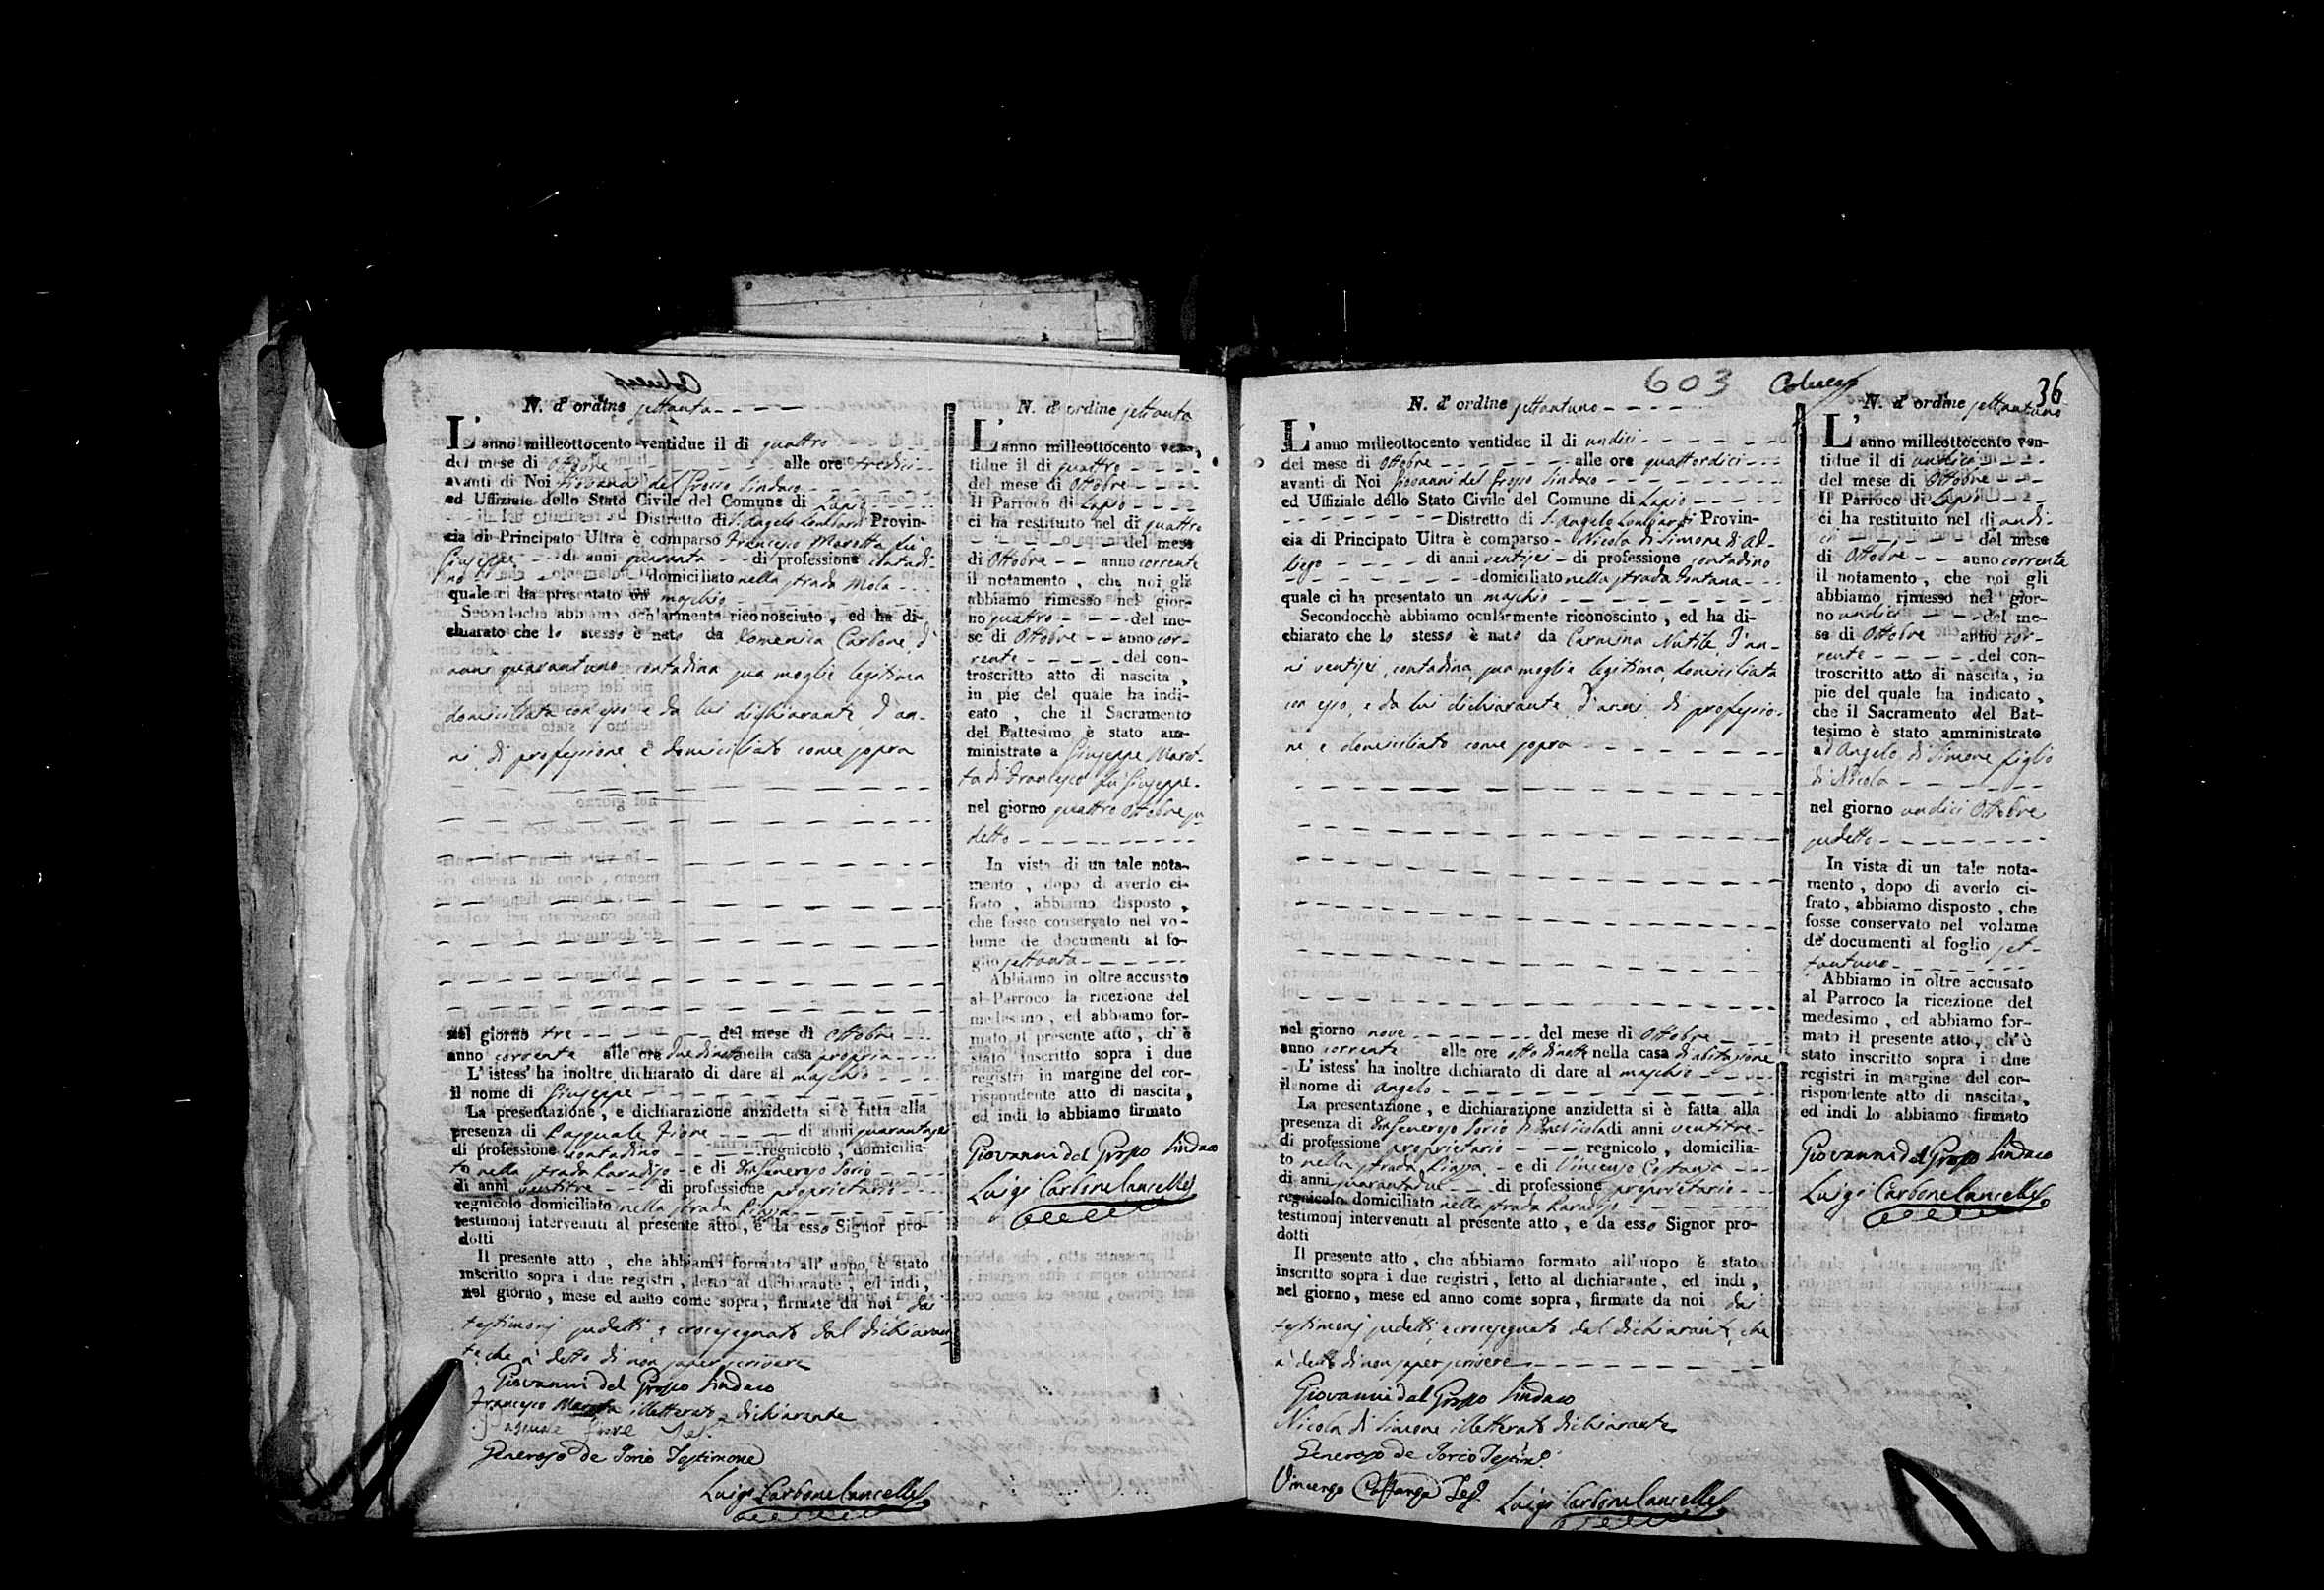 N. d' ordine settanta
L'anno milleottocento ventidue il di quattro
del mese di Ottobre alle ore tredici
avanti di Noi Giovanni del Grosso Sindaco
ed Uffiziale dello Stato Civile del Comune di Lapio
Distretto di S. Angelo Lombardi Provin-
cia di Principato Ultra è comparso Francesco Marotta fu
Giuseppe di anni quaranta di professione contadi-
no domiciliato nella strada Mola
quale ci ha presentato un maschio
Secondochè abbiamo ocularmente riconosciuto, ed ha di-
chiarato che lo stesso è nato da Domenica Carbone d'
anni quarantuno, contadina sua moglie legitima
domiciliata con esso e da lui dichiarante, d'an-
ni, di professione, e domiciliato come sopra
nel giorno tre del mese di Ottobre
anno corrente alle ore due di notte nella casa propria
L'istess' ha inoltre dichiarato di dare al maschio
il nome di Giuseppe
La presentazione, e dichiarazione anzidetta si è fatta alla
presenza di Pasquale Fiore di anni quarantasei
di professione contadino regnicolo, domicilia-
to nella strada Paradiso e di Don Generoso Iorio
di anni ventitre di professione proprietario
regnicolo domiciliato nella strada Piazza
testimonj intervenuti al presente atto, e da esso Signor pro-
dotti
Il presente atto, che abbiami formato all' uopo è stato
inscritto sopra i due registri, letto al dichiarante, ed indi,
nel giorno, mese ed anno come sopra, firmate da noi dai
testimonj sudetti, e crocesegnato dal dichiaran-
te, che a' detto di non saper scrivere
Giovanni del Grosso Sindaco
Francesco Marotta illetterato dichiarante
Pasquale Fiore Tes.
Generoso de Iorio Testimone
Luigi Carbone Cancell.
N. d' ordine settanta
L'anno milleottocento ven-
tidue il di quattro
del mese di Ottobre
Il Parroco di Lapio
ci ha restituito nel di quattro
del mese
di Ottobre anno corrente
il notamento, che noi gli
abbiamo rimesso nel gior-
no quattro del me-
se di Ottobre anno cor-
rente del con-
troscritto atto di nascita,
in piè del quale ha indi-
cato, che il Sacramento
del Battesimo è stato am-
ministrato a Giuseppe Marot-
ta di Francesco fu Giuseppe
nel giorno quattro Ottobre su
detto
In vista di un tale nota-
mento, dopo di averlo ci-
frato, abbiamo disposto,
che fosse conservato nel vo-
lume de documenti al fo-
glio settanta
Abbiamo in oltre accusato
al Parroco la ricezione del
medesimo, ed abbiamo for-
mato il presente atto, ch'è
stato inscritto sopra i due
registri in margine del cor-
rispondente atto di nascita,
ed indi lo abbiamo firmato
Giovanni del Grosso Sindaco
Luigi Carbone Cancell.
603
36
N. d' ordine settantuno
L'anno milleottocento ventidue il di undici
del mese di Ottobre alle ore quattordici
avanti di Noi Giovanni del Grosso Sindaco
ed Uffiziale dello Stato Civile del Comune di Lapio
Distretto di S. Angelo Lombardi Provin-
cia di Principato Ultra è comparso Nicola di Simone di
di anni ventisei di professione contadino
domiciliato nella strada Fontana
quale ci ha presentato un maschio
Secondocchè abbiamo ocularmente riconosciuto, ed ha di-
chiarato che lo stesso è nato da Carmina Nutile, d'an-
ni ventisei, contadina, sua moglie legitima, domiciliata
con esso, e da lui dichiarante, d'anni, di professio-
ne, e domiciliato come sopra
nel giorno nove del mese di Ottobre
anno corrente alle ore otto di notte nella casa di abitazione
L'istess' ha inoltre dichiarato di dare al maschio
il nome di Angelo
La presentazione, e dichiarazione anzidetta si è fatta alla
presenza di Don Generoso Iorio di Don Nicola di anni ventitre
di professione proprietario regnicolo, domicilia-
to nella strada Piazza e di Vincenzo Costanza
di anni quarantadue di professione proprietario
regnicolo domiciliato nella strada Paradiso
testimonj intervenuti al presente atto, e da esso Signor pro-
dotti
Il presente atto, che abbiamo formato all'uopo è stato
inscritto sopra i due registri, letto al dichiarante, ed indi,
nel giorno, mese ed anno come sopra, firmate da noi dai
testimonj sudetti, e crocesegnato dal dichiarante, che
a' detto di non saper scrivere
Giovanni del Grosso Sindaco
Nicola di Simone illetterato dichiarante
Generoso de Iorio Testim.
Vincenzo Costanza Tes.
Luigi Carbone Cancell.
N. d' ordine settantuno
L'anno milleottocento ven-
tidue il di undici
del mese di Ottobre
Il Parroco di Lapio
ci ha restituito nel di undi-
ci del mese
di Ottobre anno corrente
il notamento, che noi gli
abbiamo rimesso nel gior-
no undici del me-
se di Ottobre anno cor-
rente del con-
troscritto atto di nascita, in
piè del quale ha indicato,
che il Sacramento del Bat-
tesimo è stato amministrato
ad Angelo di Simone figlio
di Nicola
nel giorno undici Ottobre
sudetto
In vista di un tale nota-
mento, dopo di averlo ci-
frato, abbiamo disposto, che
fosse conservato nel volume
de' documenti al foglio set-
tantuno
Abbiamo in oltre accusato
al Parroco la ricezione del
medesimo, ed abbiamo for-
mato il presente atto, ch'è
stato inscritto sopra i due
registri in margine del cor-
rispondente atto di nascita,
ed indi lo abbiamo firmato
Giovanni del Grosso Sindaco
Luigi Carbone Cancell.